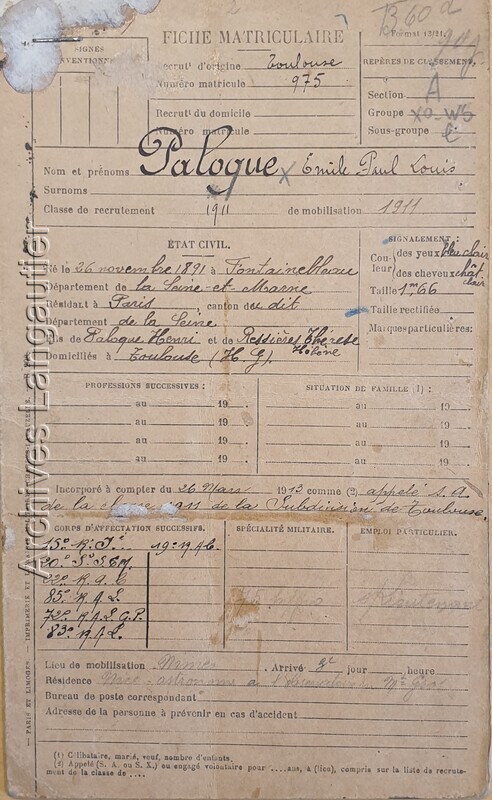 SIGNES
CONVENTIONNELS
FICHE MATRICULAIRE
Format 13/21.
Recrutt d'origine Toulouse
Numéro matricule 975
Recrutt du domicile
Numéro matricule
REPÈRES DE CLASSEMENT.
Section A
Groupe
Sous-groupe
Nom et prénoms Paloque Émile Paul Louis
Surnoms
Classe de recrutement 1911 de mobilisation 1911
ÉTAT CIVIL.
Né le 26 novembre 1891 à Fontainebleau
Département de la Seine-et-Marne
Résidant à Paris canton du dit
Département de la Seine
Fils de Paloque Henri et de Ressières Thérèse
Hélène
Domiciliés à Toulouse (H. G.)
SIGNALEMENT :
Couleur des yeux bleu clair
des cheveux chât. clair
Taille 1m 66
Taille rectifiée
Marques particulières:
PROFESSIONS SUCCESSIVES :
SITUATION DE FAMILLE (1) :
au 19 . au 19
au 19 . au 19
au 19 . au 19
au 19 . au 19
Incorporé à compter du 26 Mars 1913 comme (2) appelé S. A.
de la classe 1911 de la Subdivision de Toulouse.
CORPS D'AFFECTATION SUCCESSIFS.
SPÉCIALITÉ MILITAIRE.
EMPLOI PARTICULIER.
15e R. I. 19e R. A. C.
20e S. S. E. M.
22e R. A. C
85e R. A. L.
72e R. A. L. G. P.
83e R. A. L.
Lieu de mobilisation Nimes Arrivé 2e jour heure
Résidence Nice - astronome à l'Observatoire du Mt Gros
Bureau de poste correspondant
Adresse de la personne à prévenir en cas d'accident
(1) Célibataire, marié, veuf, nombre d'enfants.
(2) Appelé (S. A. ou S. X.) ou engagé volontaire pour ....ans, à (lieu), compris sur la liste de recrutement de la classe de ....
Archives Langautier